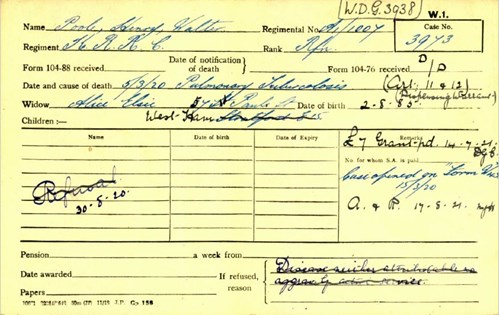 [W.D.G. 3938]
W.1.
Name Poole, Henry Walter Regimental No. /1007 Case No.
Regiment K. R. R. C. Rank Rfn. 3973
Form 104-88 received Date of notification of death Form 104-76 received D/D
(Art: 11 & 12)
Date and cause of death 5/3/20 Pulmonary Tuberculosis
Widow Alice Elsie 57 St Pauls St. Date of birth 2-8-85
Children:— West Ham Stratford E15
Name Date of birth Date of Expiry
Remarks
£7 Grant pd. 14-7-21
No. for whom S.A. is paid
Case opened on "Form
15/3/20
Refused
30-8-20.
A. & R. 17-8-21.
Pension a week from
Date awarded If refused, reason Disease neither attributable nor
aggravated service.
Papers
Gp 158